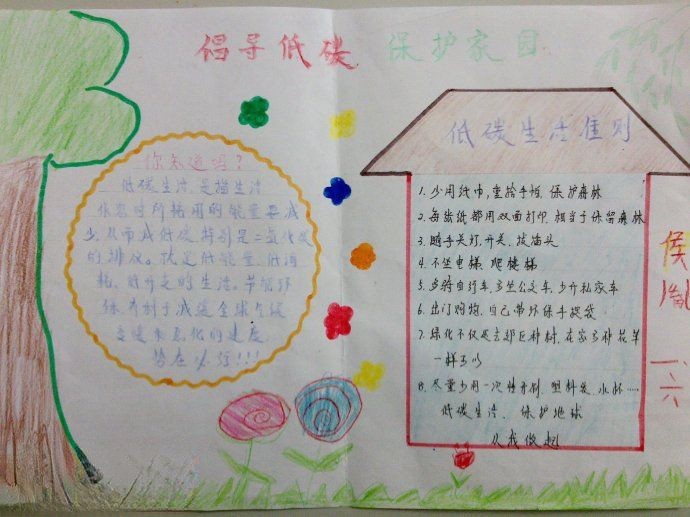 倡导低碳 保护家园
你知道吗？
低碳生活,是指生活
作息时所耗用的能量要减
少,从而减低碳,特别是二氧化碳
的排放。就是低能量、低消
耗、低开支的生活。节能环
保,有利于减缓全球气候
变暖和恶化的速度
势在必行!!!
低碳生活准则
1. 少用纸巾,重拾手帕,保护森林
2. 每张纸都用双面打印,相当于保留森林
3. 随手关灯、开关、拔插头
4. 不坐电梯、爬楼梯
5. 多骑自行车、多坐公交车、少开私家车
6. 出门购物,自己带环保手提袋
7. 绿化不仅是去郊区种树,在家多种花草
一样可以
8. 尽量少用一次性牙刷、塑料袋、水杯……
低碳生活、保护地球
从我做起
侯
一、六